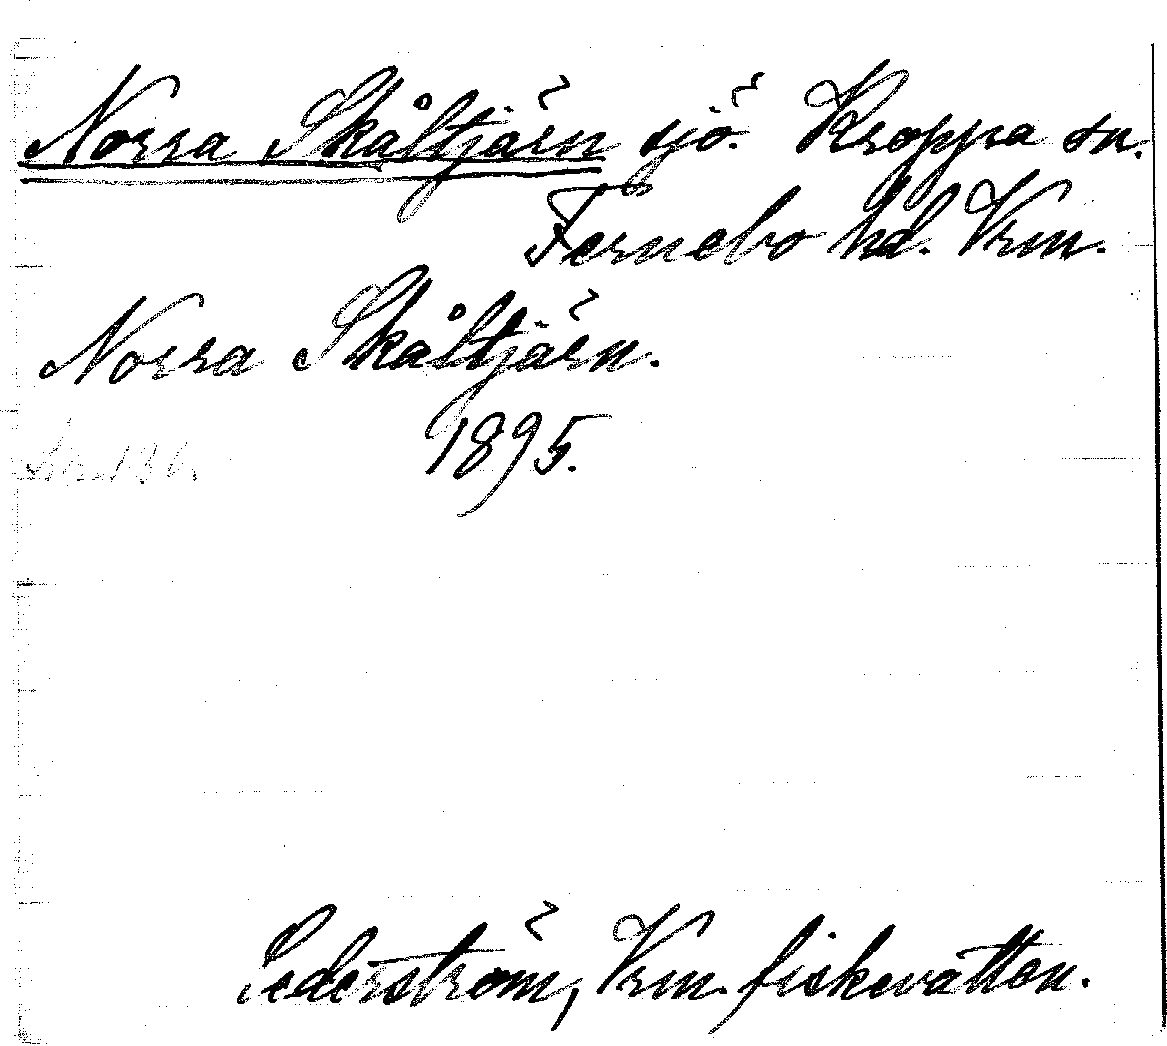 Norra Skåltjärn sjö. Kroppa sn.
Färnebo hd. Vrm.
Norra Skåltjärn.
1895.
Cederström, Vrm. fiskevatten.